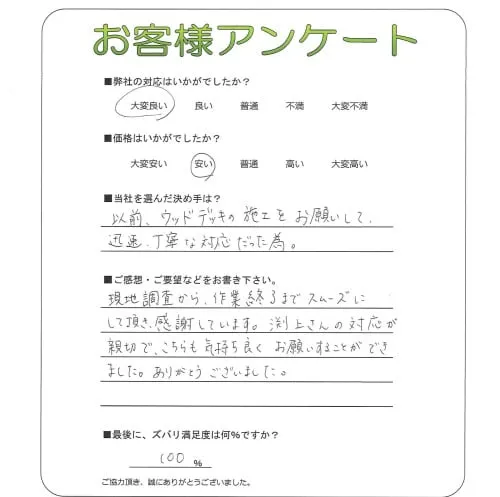 お客様アンケート
■弊社の対応はいかがでしたか?
大変良い 良い 普通 不満 大変不満
■価格はいかがでしたか?
大変安い 安い 普通 高い 大変高い
■当社を選んだ決め手は?
以前、ウッドデッキの施工をお願いして、
迅速、丁寧な対応だった為。
■ご感想・ご要望などをお書き下さい。
現地調査から、作業終るまでスムーズに
して頂き、感謝しています。渕上さんの対応が
親切で、こちらも気持ち良くお願いすることができ
ました。ありがとうございました。
■最後に、ズバリ満足度は何%ですか?
100 %
ご協力頂き、誠にありがとうございました。